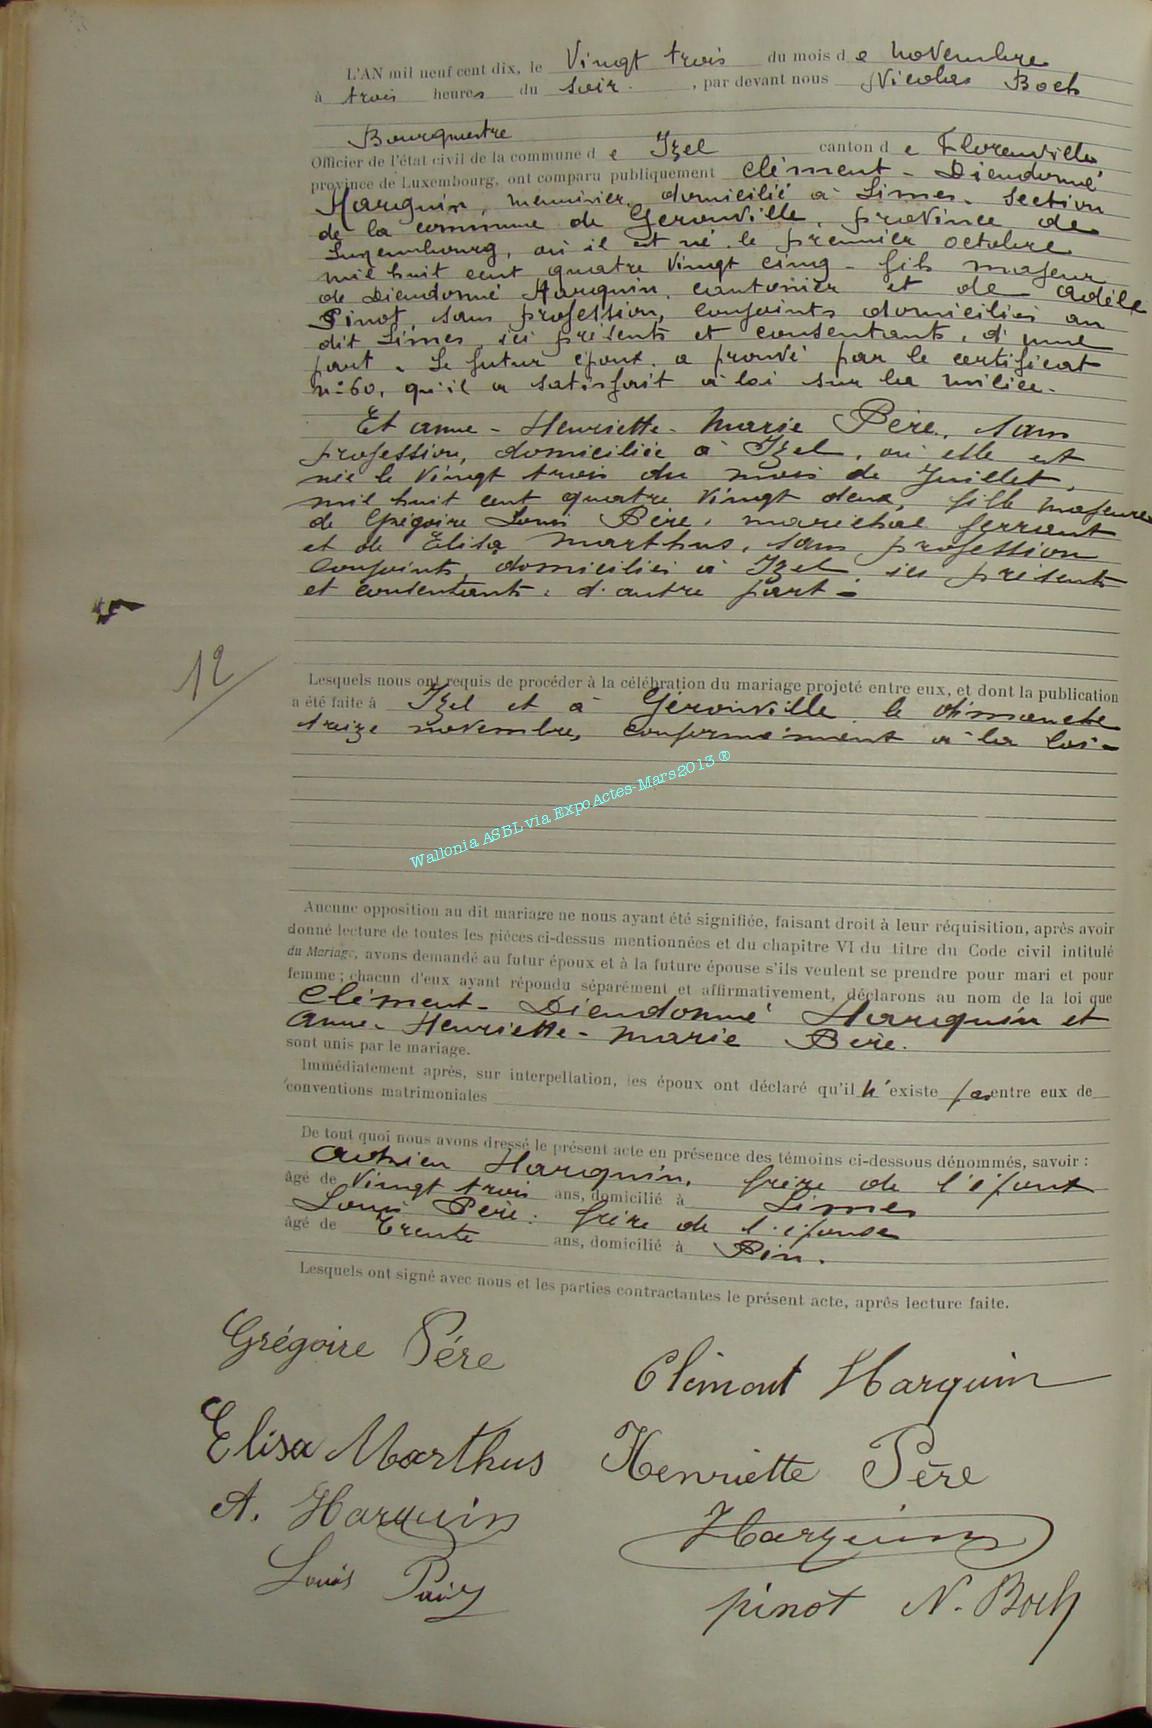 L'AN mil neuf cent dix, le Vingt trois du mois de novembre
à trois heures du soir, par devant nous Nicolas Boch
Bourgmestre
Officier de l'état civil de la commune de Izel canton de Florenville
province de Luxembourg, ont comparu publiquement Clément - Dieudonné
Harquin, menuisier, domicilié à Limes, section
de la commune de Gérouville, province de
Luxembourg, où il est né le premier octobre
mil huit cent quatre vingt cinq - fils majeur
de Dieudonné Harquin, cantonier et de Adèle
Pinot, sans profession, conjoints domiciliés au
dit Limes, ici présents et consentants, d'une
part. Le futur époux a prouvé par le certificat
n° 60, qu'il a satisfait à loi sur la milice.
Et Anne - Henriette - Marie Père, sans
profession, domiciliée à Izel, où elle est
née le vingt trois du mois de Juillet,
mil huit cent quatre vingt deux, fille majeure
de Grégoire Louis Père, maréchal ferrant
et de Elisa Marthus, sans profession
conjoints, domiciliés à Izel, ici présents
et consentants, d'autre part -
12
Lesquels nous ont requis de procéder à la célébration du mariage projeté entre eux, et dont la publication
a été faite à Izel et à Gérouville, le dimanche
treize novembre, conformément à la loi -
Wallonia ASBL via ExpoActes-Mars2013 ®
Aucune opposition au dit mariage ne nous ayant été signifiée, faisant droit à leur réquisition, après avoir
donné lecture de toutes les pièces ci-dessus mentionnées et du chapitre VI du titre du Code civil intitulé
du Mariage, avons demandé au futur époux et à la future épouse s'ils veulent se prendre pour mari et pour
femme ; chacun d'eux ayant répondu séparément et affirmativement, déclarons au nom de la loi que
Clément - Dieudonné Harquin et
Anne - Henriette - Marie Père.
sont unis par le mariage.
Immédiatement après, sur interpellation, les époux ont déclaré qu'il n'existe pas entre eux de
conventions matrimoniales
De tout quoi nous avons dressé le présent acte en présence des témoins ci-dessous dénommés, savoir :
Harquin, frère de l'époux
âgé de Vingt trois ans, domicilié à Limes
Louis Père, frère de l'épouse
âgé de Trente ans, domicilié à Pin.
Lesquels ont signé avec nous et les parties contractantes le présent acte, après lecture faite.
Grégoire Pére
Clément Harquin
Elisa Marthus
Henriette Père
A. Harquin
Harquin
Louis
pinot N. Boch